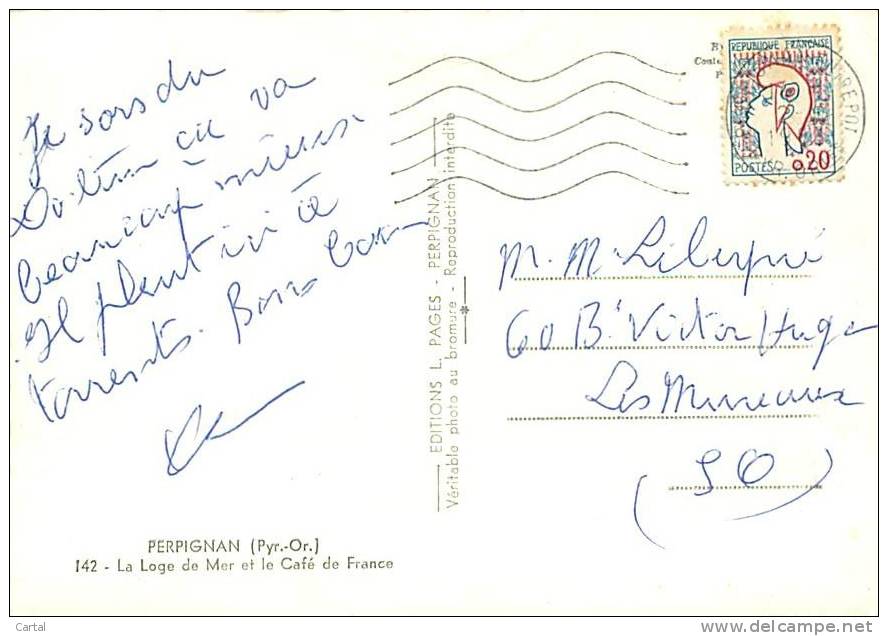 Je sors du
va
beaucoup mieux
Il pleut ici à
torrents. Bons
EDITIONS L. PAGES - PERPIGNAN
Véritable photo au bromure - Reproduction interdite
REPUBLIQUE FRANÇAISE
POSTES 0,20
M. Mme
60 Bd Victor Hugo
Les Mureaux
(SO)
PERPIGNAN (Pyr.-Or.)
142 - La Loge de Mer et le Café de France
Cartal
www.delcampe.net